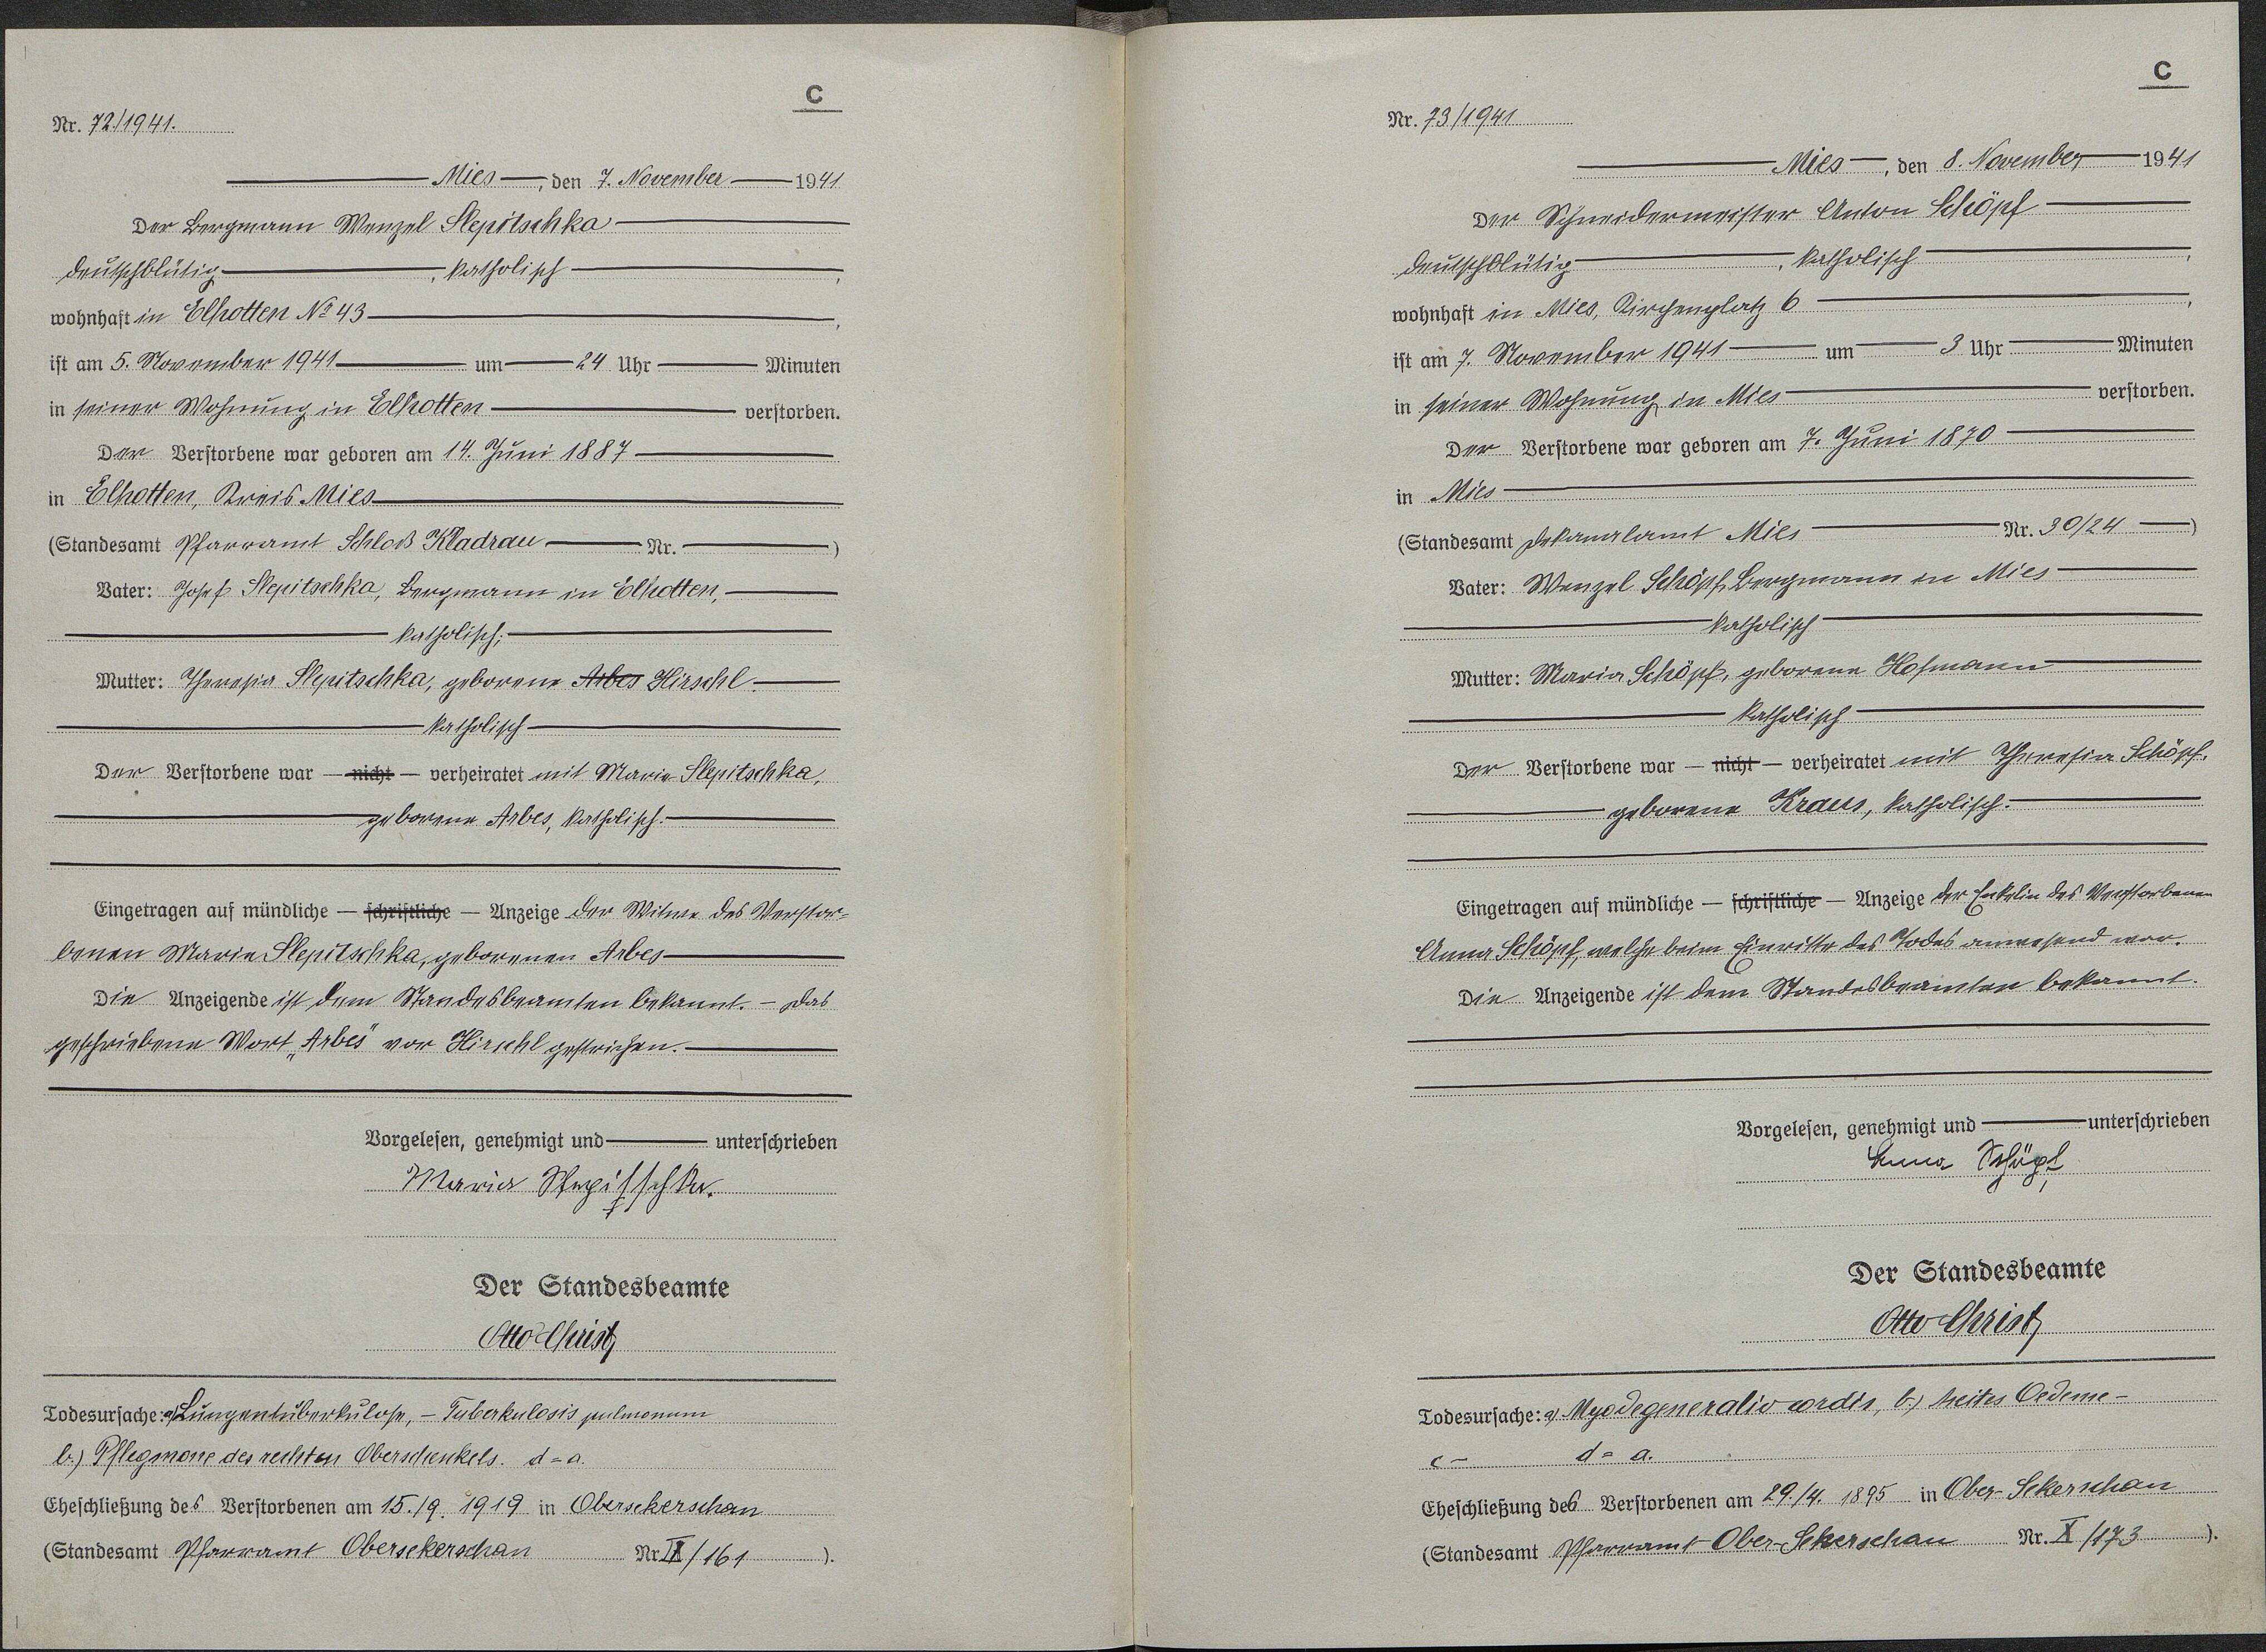 C
Nr. 72./1941.
Mies, den 7. November 1941
Der Bergmann Wenzel Slepitschka
deutschblütig, katholisch,
wohnhaft in Elhotten No 43,
ist am 5. November 1941 um 24 Uhr Minuten
in seiner Wohnung in Elhotten verstorben.
Der Verstorbene war geboren am 14. Juni 1887
in Elhotten, Kreis Mies
(Standesamt Pfarramt Schloß Kladrau Nr. )
Vater: Josef Slepitschka, Bergmann in Elhotten,
katholisch;
Mutter: Theresia Slepitschka, geborene Arbes Hirschl.
katholisch
Der Verstorbene war — nicht — verheiratet mit Marie Slepitschka,
geborene Arbes, katholisch.
Eingetragen auf mündliche — schriftliche — Anzeige der Witwe des Verstor-
benen Marie Slepitschka, geborenen Arbes
Die Anzeigende ist dem Standesbeamten bekannt. – Das
geschriebene Wort „Arbes" vor Hirschl gestrichen.
Vorgelesen, genehmigt und unterschrieben
Maria Slepitschka.
Der Standesbeamte
Otto Christ
Todesursache: a) Lungentuberkulose, – Tuberkulosis pulmonum
b.) Pflegmone des rechten Oberschenkels. d = a.
Eheschließung des Verstorbenen am 15./9. 1919 in Obersekerschan
(Standesamt Pfarramt Obersekerschan Nr. IX/161 ).
C
Nr. 73/1941
Mies, den 8. November 1941
Der Schneidermeister Anton Schöpf
deutschblütig, katholisch,
wohnhaft in Mies, Kirchenplatz 6,
ist am 7. November 1941 um 3 Uhr Minuten
in seiner Wohnung in Mies verstorben.
Der Verstorbene war geboren am 7. Juni 1870
in Mies
(Standesamt Dekanalamt Mies Nr. 30/24 )
Vater: Wenzel Schöpf, Bergmann in Mies
katholisch
Mutter: Maria Schöpf, geborene Hofmann
katholisch
Der Verstorbene war — nicht — verheiratet mit Theresia Schöpf,
geborene Kraus, katholisch.
Eingetragen auf mündliche — schriftliche — Anzeige der Enkelin des Verstorbenen
Anna Schöpf, welche beim Eintritte des Todes anwesend war.
Die Anzeigende ist dem Standesbeamten bekannt.
Vorgelesen, genehmigt und unterschrieben
Anna Schöpf
Der Standesbeamte
Otto Christ
Todesursache: a) Myodegeneratio cordis, b.) Oedeme –
c – d = a.
Eheschließung des Verstorbenen am 29./4. 1895 in Ober-Sekerschan
(Standesamt Pfarramt Ober-Sekerschan Nr. X/173 ).